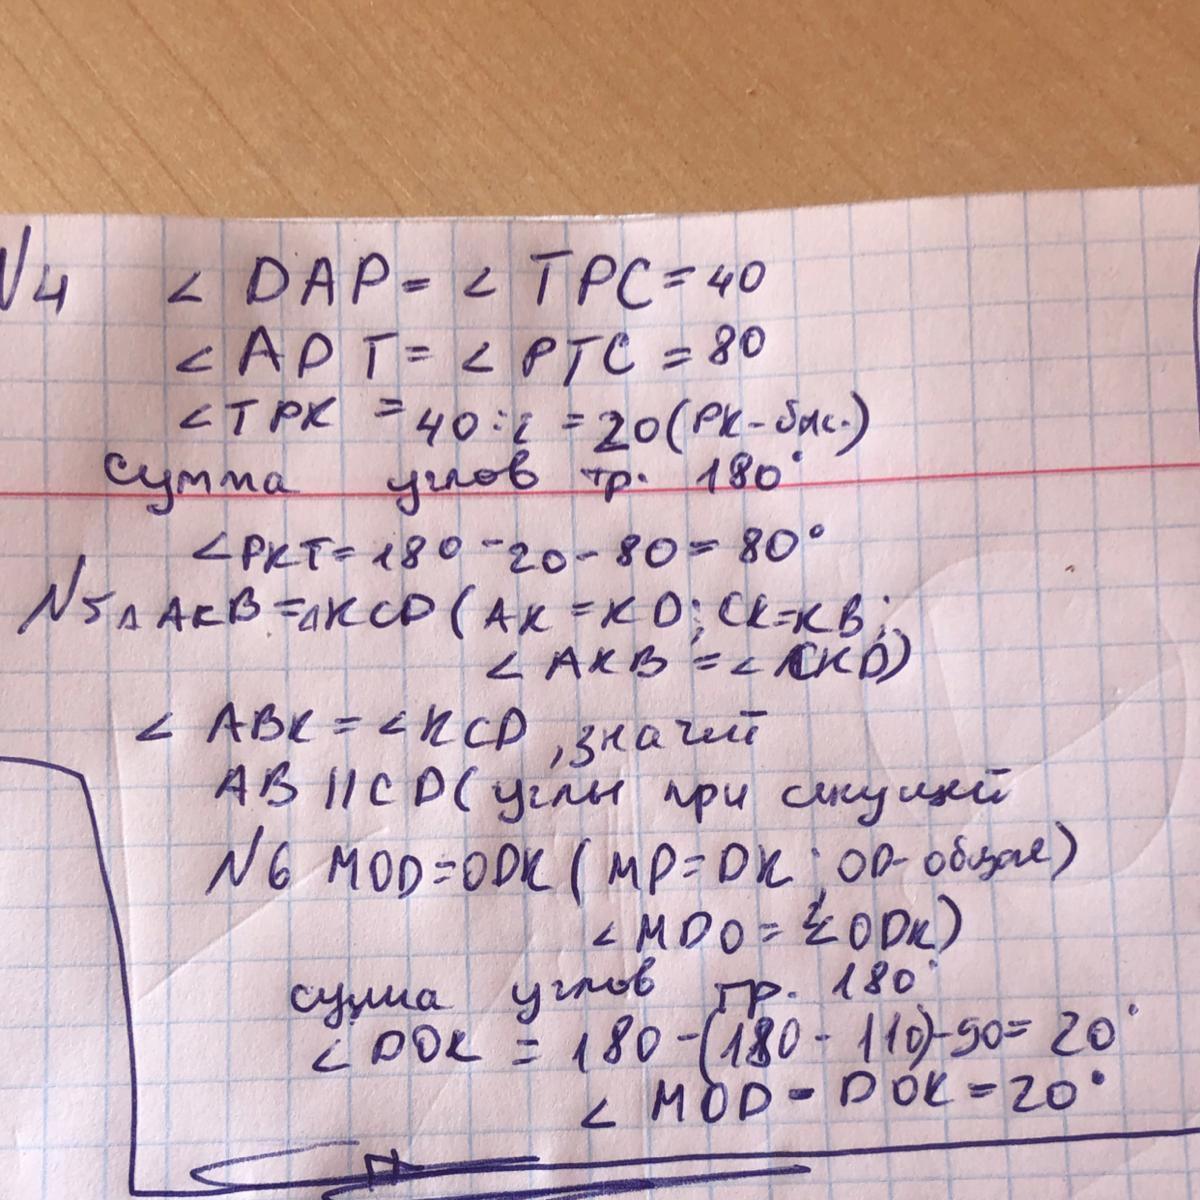 N4 ∠ DAP = ∠ TPC = 40
∠ ADT = ∠ PTC = 80
∠TPK = 40:2 = 20 (PK - бис.)
сумма углов тр. 180°
∠PKT = 180 - 20 - 80 = 80°
N5 △ AKB = △KCD ( AK = KD; CK=KB;
∠ AKB = ∠ CKD)
∠ ABK = ∠KCD, значит
AB || CD ( углы при секущей
N6 MOD = ODK ( MD = DK; OD - общая)
∠ MDO = ∠ ODK)
сумма углов тр. 180°
∠ DOK = 180 - (180 - 110) - 90 = 20°
∠ MOD = DOK = 20°